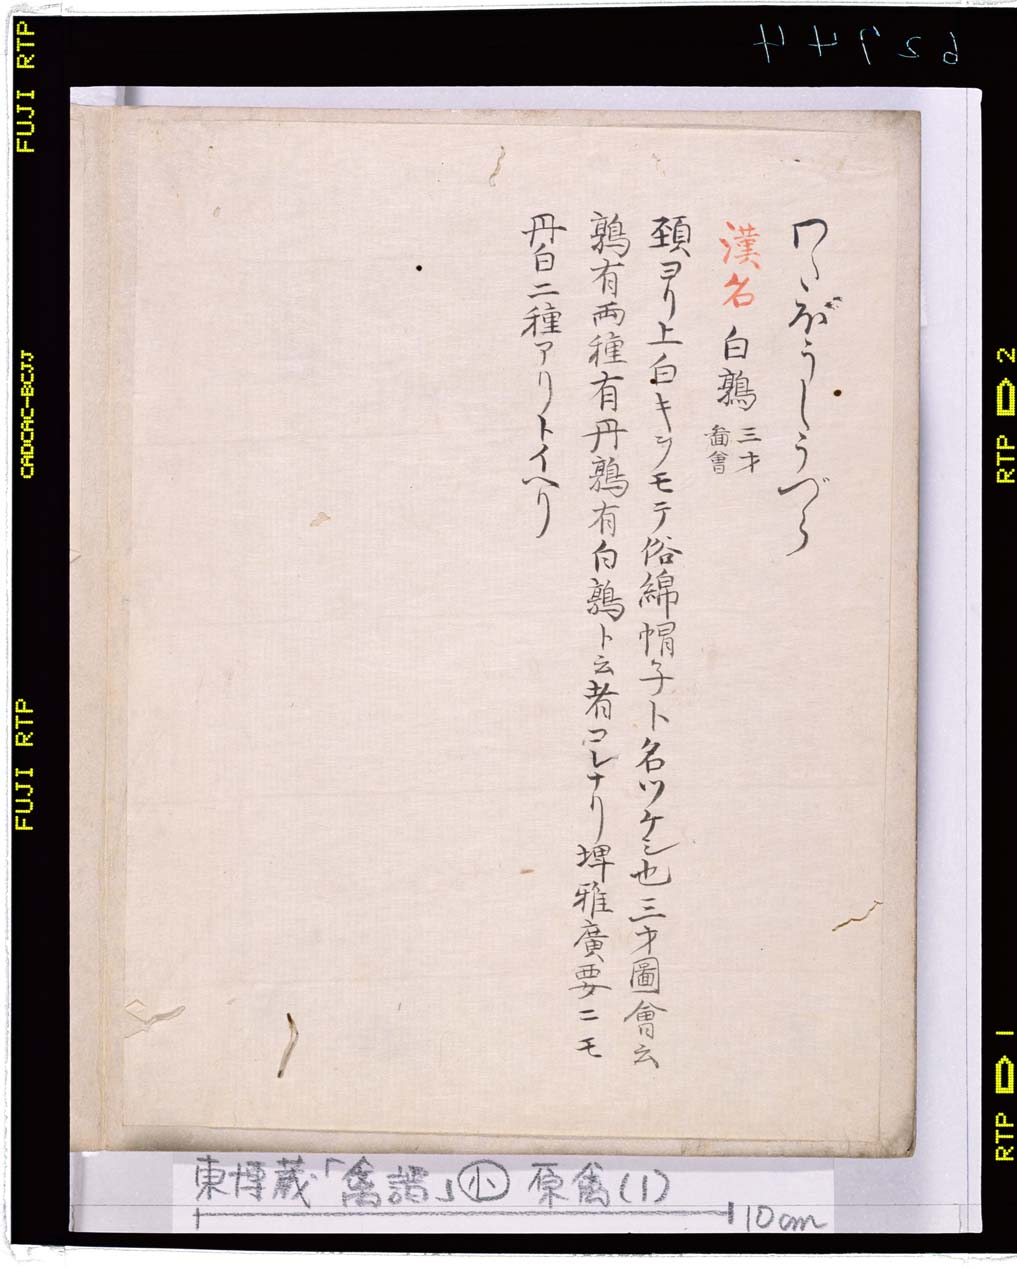 62944
FUJI RTP
CADCAC-BCJJ
FUJI RTP
RTP 2
RTP 1
わたぼうしうづら
漢名 白鶉 三才
圖會
頚ヨリ上白キヲモテ俗綿帽子ト名ツケシ也三才圖會云
鶉有両種有丹鶉有白鶉ト云者コレナリ埤雅廣要ニモ
丹白二種アリトイヘリ
東博蔵「禽譜」小 原禽(1)
10cm